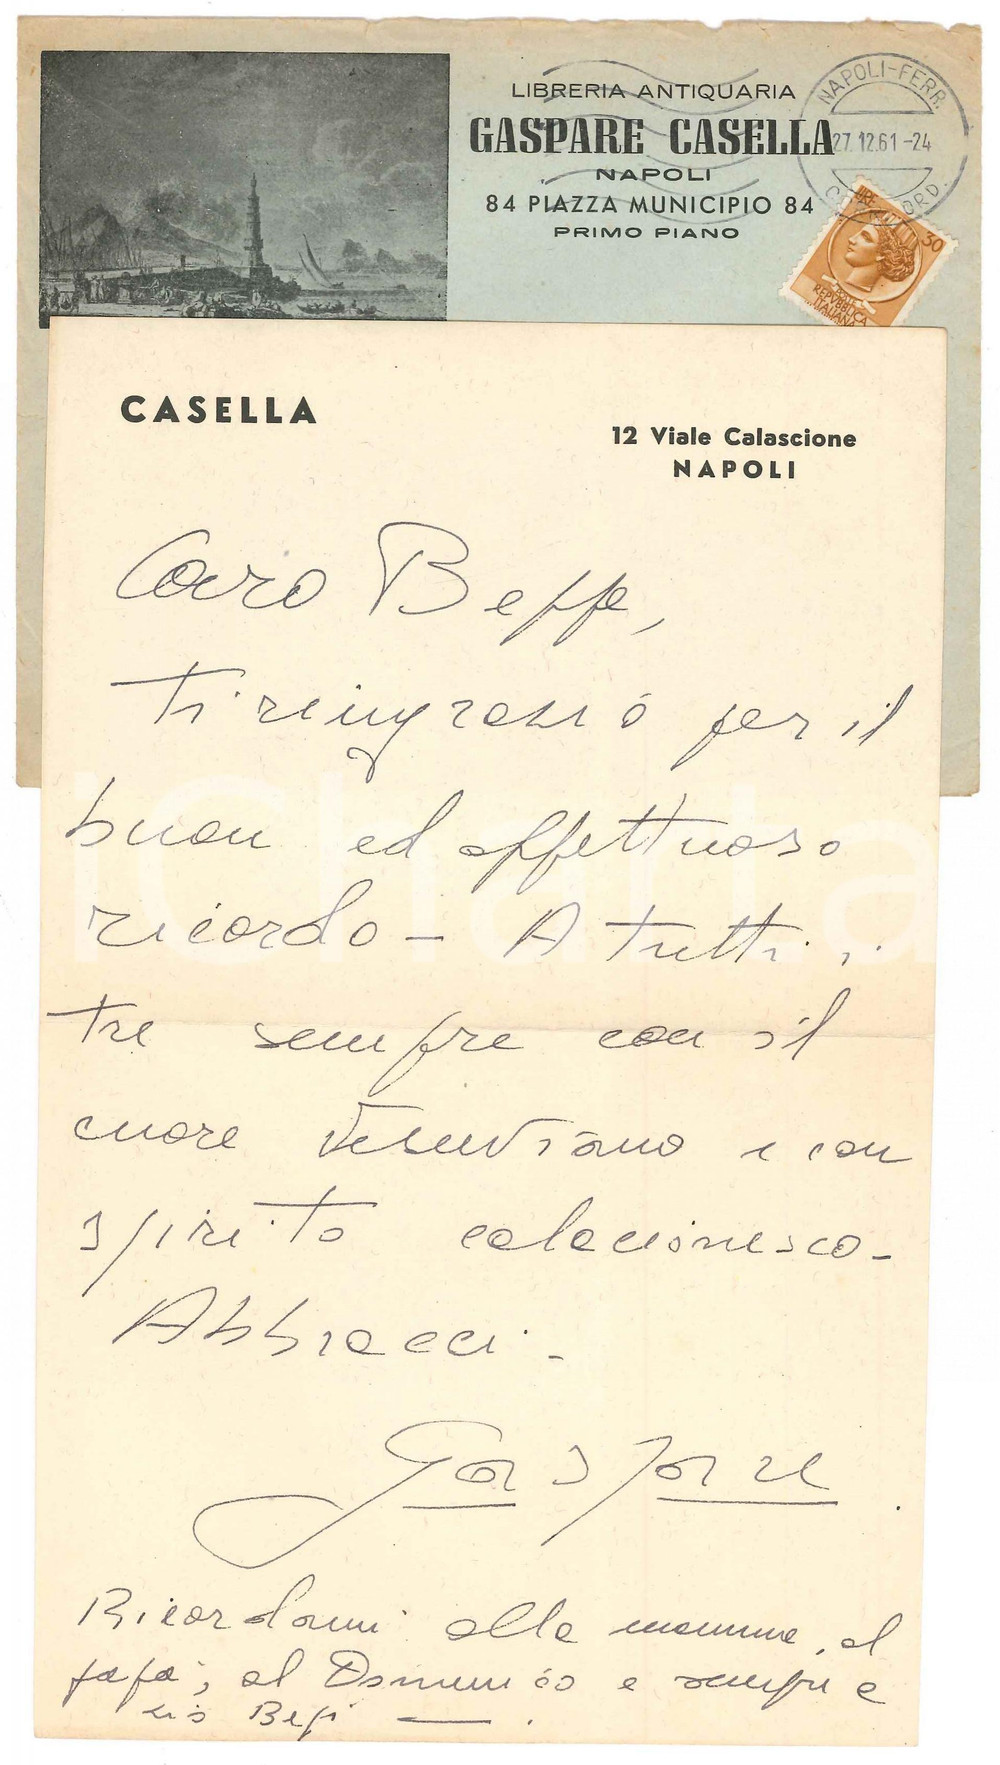 LIBRERIA ANTIQUARIA
GASPARE CASELLA
NAPOLI
84 PIAZZA MUNICIPIO 84
PRIMO PIANO
NAPOLI-FERR.
27.12.61-24
30
REPVBBLICA
ITALIANA
CASELLA
12 Viale Calascione
NAPOLI
Caro Beppe,
ti ringrazio per il
buon ed affettuoso
ricordo - A tutti i
tre sempre con il
cuore vesuviano e con
spirito calacionesco -
Abbracci -
Gaspare
Ricordami alla mamma, al
papà, al Domenico e sempre
iCharta